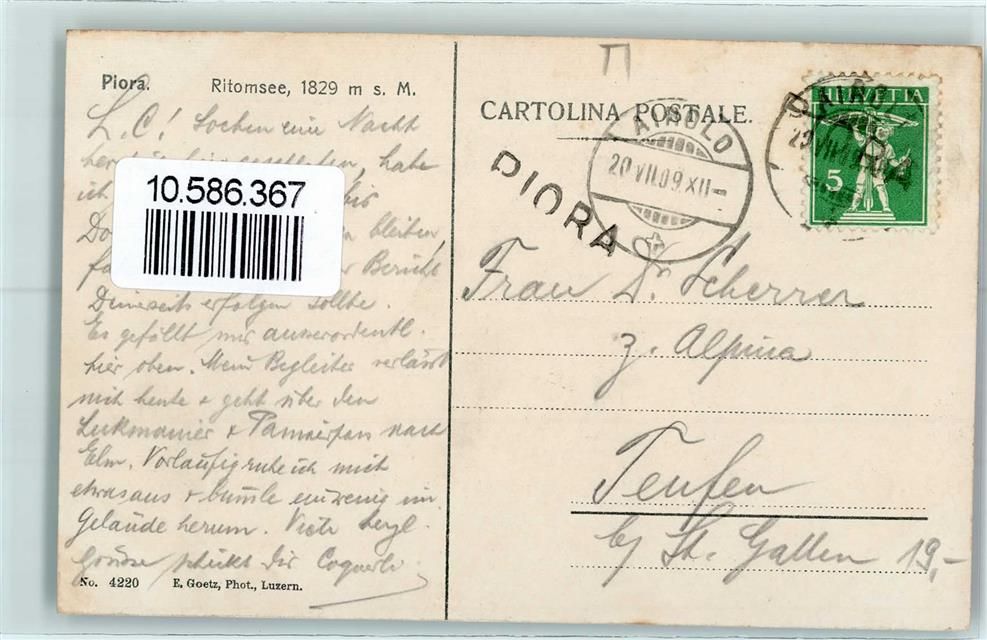 Piora. Ritomsee, 1829 m s. M.
L. C! Soeben eine Nacht
geschlafen, habe
ich bis
bleiben,
Bericht
Deinerseits erfolgen sollte.
Es gefällt mir ausserordentl.
hier oben. Mein Begleiter verlässt
mich heute + geht über den
Lukmanier + Panixerpass nach
Elm. Vorläufig ruhe ich mich
etwas aus + bumle ein wenig im
Gelände herum. Viele herzl.
Grüsse schickt Dir
No. 4220 E. Goetz, Phot., Luzern.
10.586.367
CARTOLINA POSTALE.
PIORA
AIROLO
20 VII.09.XII
HELVETIA
5
AIROLO
PIORA
Frau Dr. Scherrer
z. Alpina
Teufen
b/ St. Gallen 19,-